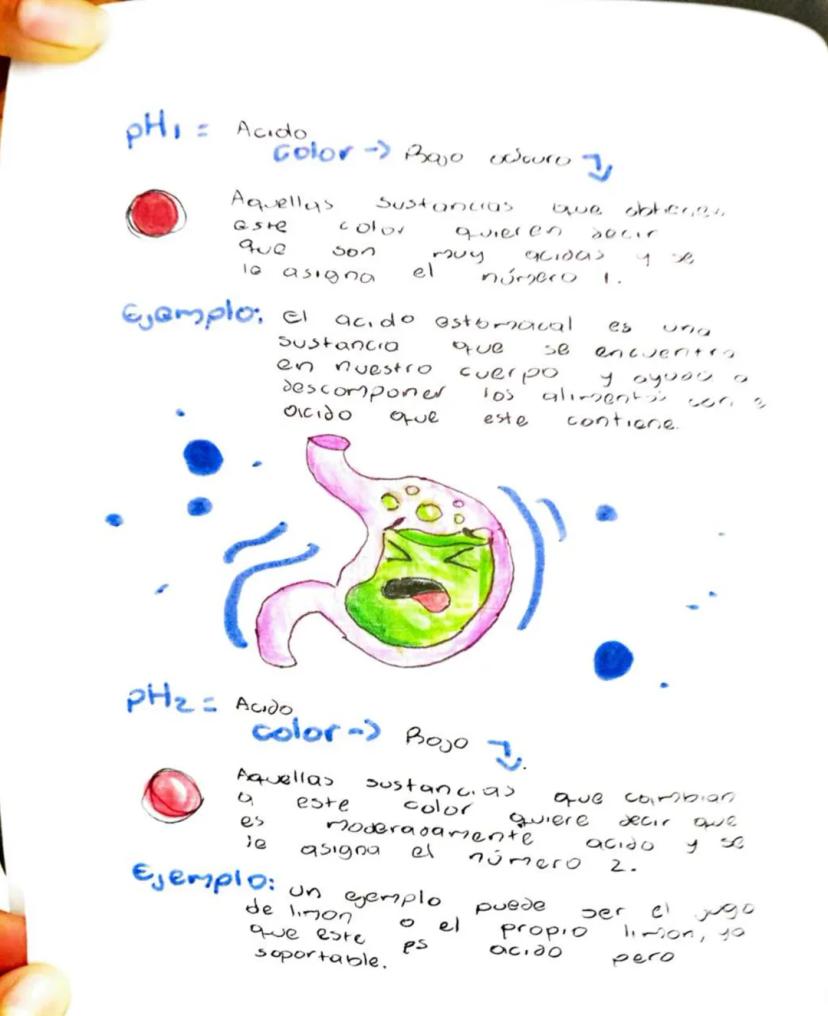 pH1 = Acido
color -> Bajo oscuro
Aquellas sustancias que obtienen
este color quieren decir
que son muy acidas y se
le asigna el número 1.
Ejemplo: El acido estomacal es una
sustancia que se encuentra
en nuestro cuerpo y ayuda a
descomponer los alimentos con
acido que este contiene.
pH2 = Acido
color -> Rojo
Aquellas sustancias que cambian
a este color quiere decir que
es moderadamente acido y se
le asigna el número 2.
Ejemplo: un ejemplo puede ser el jugo
de limon o el propio limon, ya
que este es acido pero
soportable.